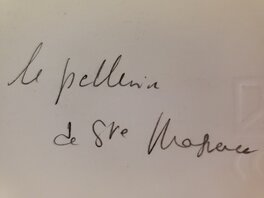 le pellerin
de Ste Maxence